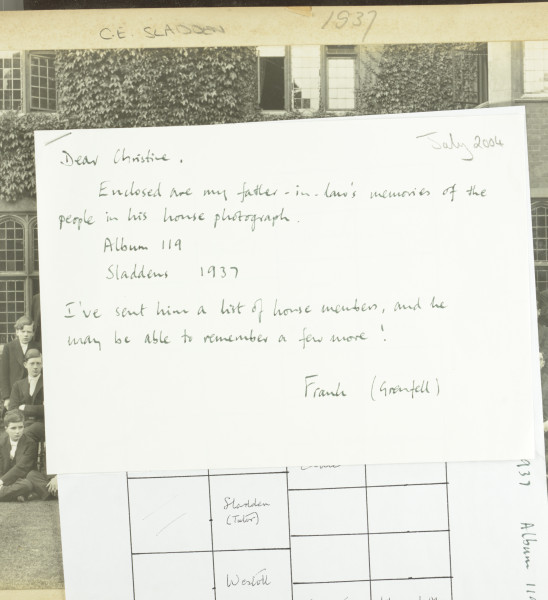 C.E. SLADDEN 1937
July 2004
Dear Christine,
Enclosed are my father-in-law's memories of the
people in his house photograph.
Album 119
Sladdens 1937
I've sent him a list of house members, and he
may be able to remember a few more!
Frank (Grenfell)
Sladden
(Tutor)
937 Album 11